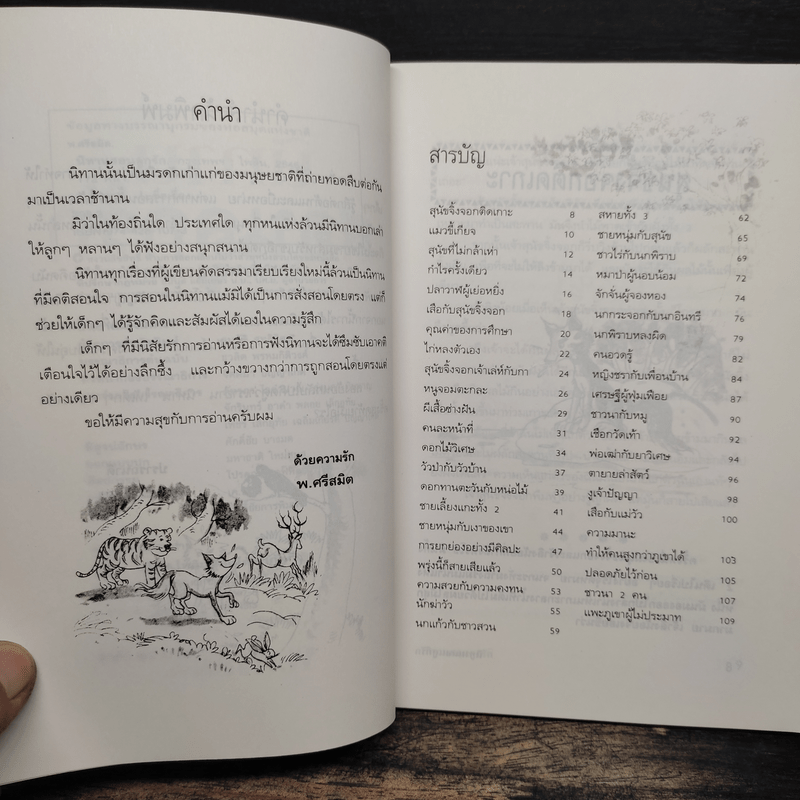 คำนำ
นิทานนั้นเป็นมรดกเก่าแก่ของมนุษยชาติที่ถ่ายทอดสืบต่อกัน
มาเป็นเวลาช้านาน
มิว่าในท้องถิ่นใด ประเทศใด ทุกหนแห่งล้วนมีนิทานบอกเล่า
ให้ลูกๆ หลานๆ ได้ฟังอย่างสนุกสนาน
นิทานทุกเรื่องที่ผู้เขียนคัดสรรมาเรียบเรียงใหม่นี้ล้วนเป็นนิทาน
ที่มีคติสอนใจ การสอนในนิทานแม้มิได้เป็นการสั่งสอนโดยตรง แต่ก็
ช่วยให้เด็กๆ ได้รู้จักคิดและสัมผัสได้เองในความรู้สึก
เด็กๆ ที่มีนิสัยรักการอ่านหรือการฟังนิทานจะได้ซึมซับเอาคติ
เตือนใจไว้ได้อย่างลึกซึ้ง และกว้างขวางกว่าการถูกสอนโดยตรงแต่
อย่างเดียว
ขอให้มีความสุขกับการอ่านครับผม
ด้วยความรัก
พ.ศรีสมิต
สารบัญ
สุนัขจิ้งจอกติดเกาะ 8
แมวขี้เกียจ 10
สุนัขที่ไม่กล้าเห่า 12
กำไรครั้งเดียว 14
ปลาวาฬผู้เย่อหยิ่ง 16
เสือกับสุนัขจิ้งจอก 18
คุณค่าของการศึกษา 20
ไก่หลงตัวเอง 22
สุนัขจิ้งจอกเจ้าเล่ห์กับกา 24
หนูจอมตะกละ 26
ผีเสื้อช่างฝัน 29
คนละหน้าที่ 31
ดอกไม้วิเศษ 34
วัวป่ากับวัวบ้าน 37
ดอกทานตะวันกับหน่อไม้ 39
ชายเลี้ยงแกะทั้ง 2 41
ชายหนุ่มกับเงาของเขา 44
การยกย่องอย่างมีศิลปะ 47
พรุ่งนี้ก็สายเสียแล้ว 50
ความสวยกับความคงทน 53
นักฆ่าวัว 55
นกแก้วกับชาวสวน 59
สหายทั้ง 3 62
ชายหนุ่มกับสุนัข 65
ชาวไร่กับนกพิราบ 69
หมาป่าผู้นอบน้อม 72
จักจั่นผู้จองหอง 74
นกกระจอกกับนกอินทรี 76
นกพิราบหลงผิด 79
คนอวดรู้ 82
หญิงชรากับเพื่อนบ้าน 84
เศรษฐีผู้ฟุ่มเฟือย 87
ชาวนากับหมู 90
เชือกวัดเท้า 92
พ่อเฒ่ากับยาวิเศษ 94
ตายายล่าสัตว์ 96
งูเจ้าปัญญา 98
เสือกับแม่วัว 100
ความมานะ
ทำให้คนสูงกว่าภูเขาได้ 103
ปลอดภัยไว้ก่อน 105
ชาวนา 2 คน 107
แพะภูเขาผู้ไม่ประมาท 109